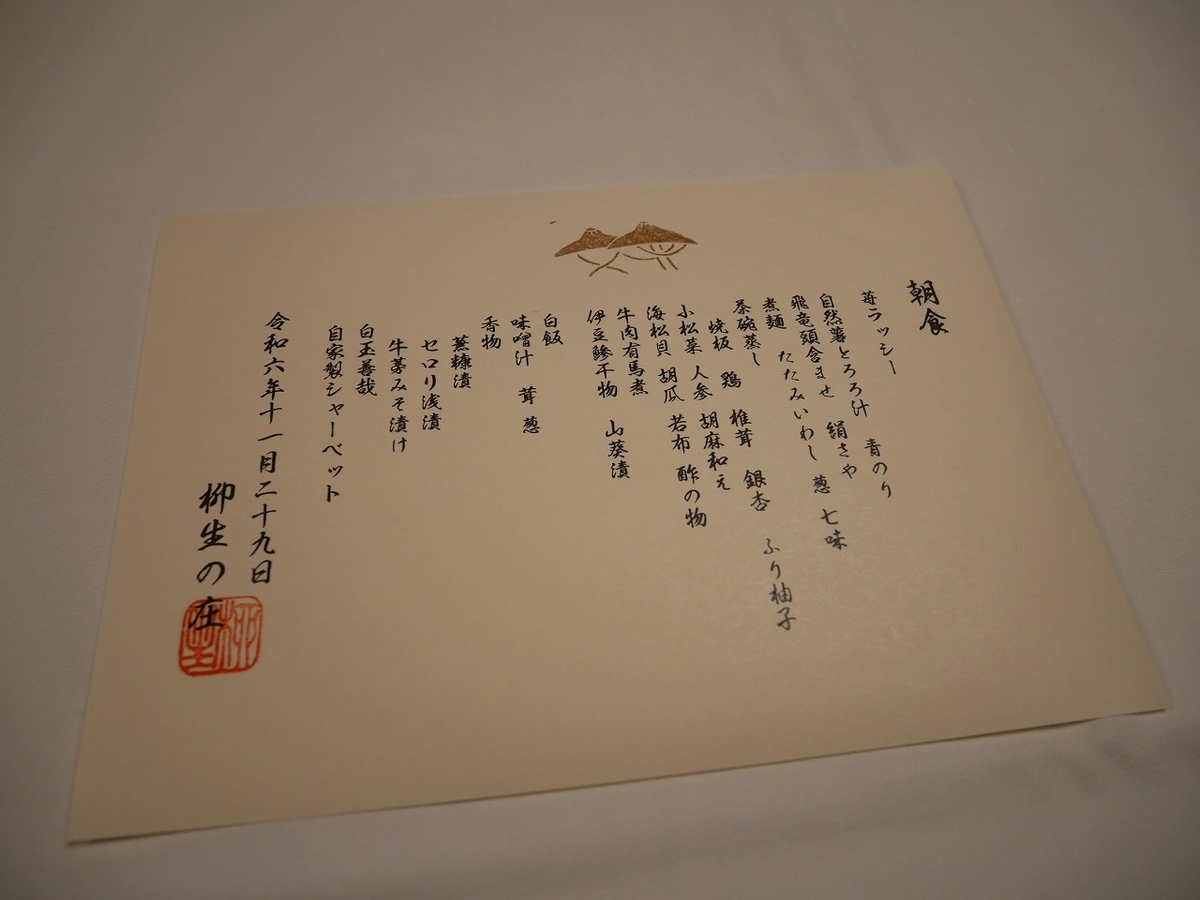 朝食
苺ラッシー
自然薯とろろ汁 青のり
飛竜頭含ませ 絹さや
煮麺 たたみいわし 葱 七味
茶碗蒸し
焼板 鶏 椎茸 銀杏 ふり柚子
小松菜 人参 胡麻和え
海松貝 胡瓜 若布 酢の物
牛肉有馬煮
伊豆鯵干物 山葵漬
白飯
味噌汁 茸 葱
香物
蕪糠漬
セロリ浅漬
牛蒡みそ漬け
白玉善哉
自家製シャーベット
令和六年十一月二十九日
柳生の庄